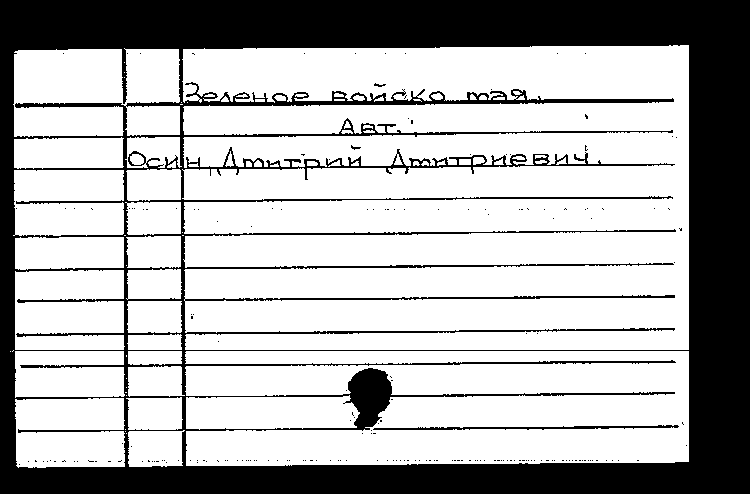 Зеленое войско мая.
Авт.:
Осин, Дмитрий Дмитриевич.